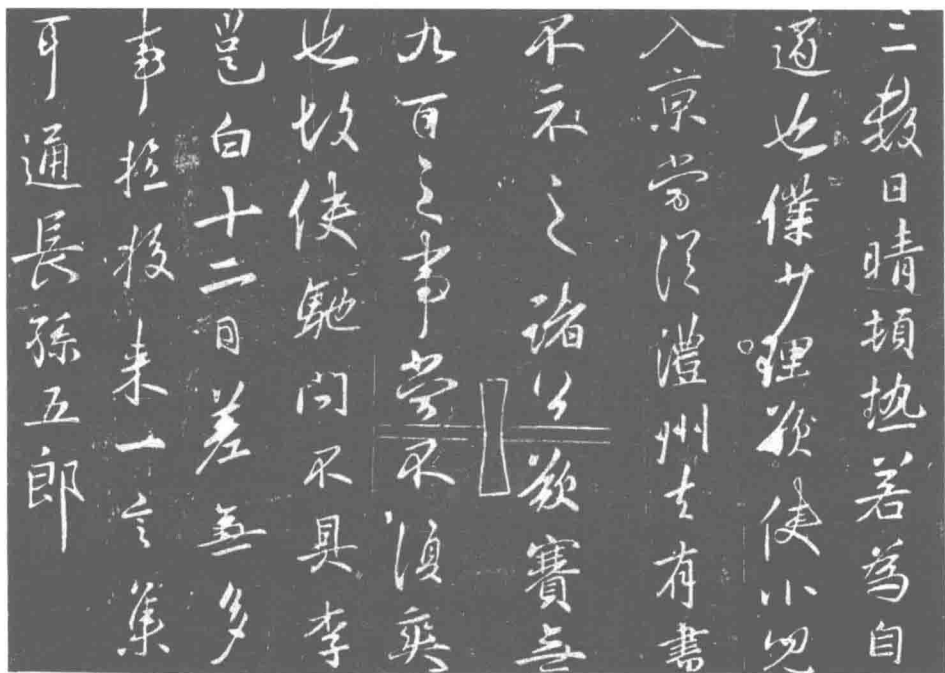 三數日晴頓熱若為自
適也僕少理欲使小兒
入京當從澧州去有書
不示之諸公欲賽無
九百之事嘗不須奭
也故使馳問不具李
邕白十二日差無多
事挖投来一言集
耳通長孫五郎